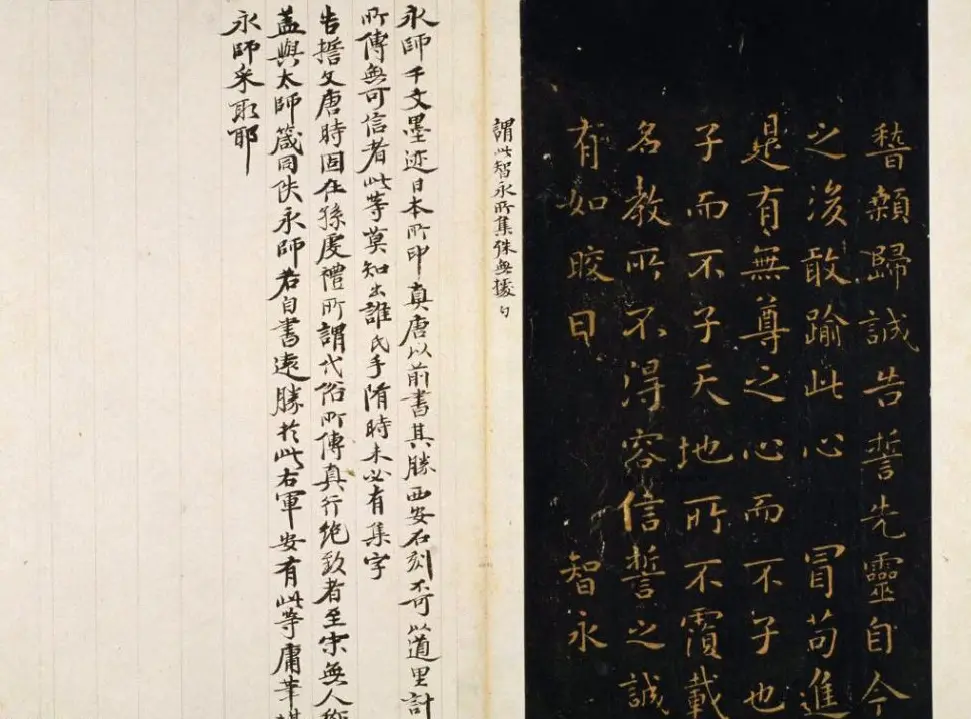 稽顙歸誠告誓先靈自今
之後敢踰此心 冒苟進
是有無尊之心而不子也
子而不子天地所不覆載
名教所不得容信誓之誠
有如晈日 智永
謂此智永所集殊無據勺
永師千文墨迹日本所印真唐以前書其勝西安石刻不可以道里計
所傳無可信者此等莫知出誰氏手隋時未必有集字
告誓文唐時固在孫虔禮所謂代俗所傳真行絶致者至宋無人
蓋與太師箴同佚永師若自書遠勝於此右軍安有此等庸筆
永師采取耶